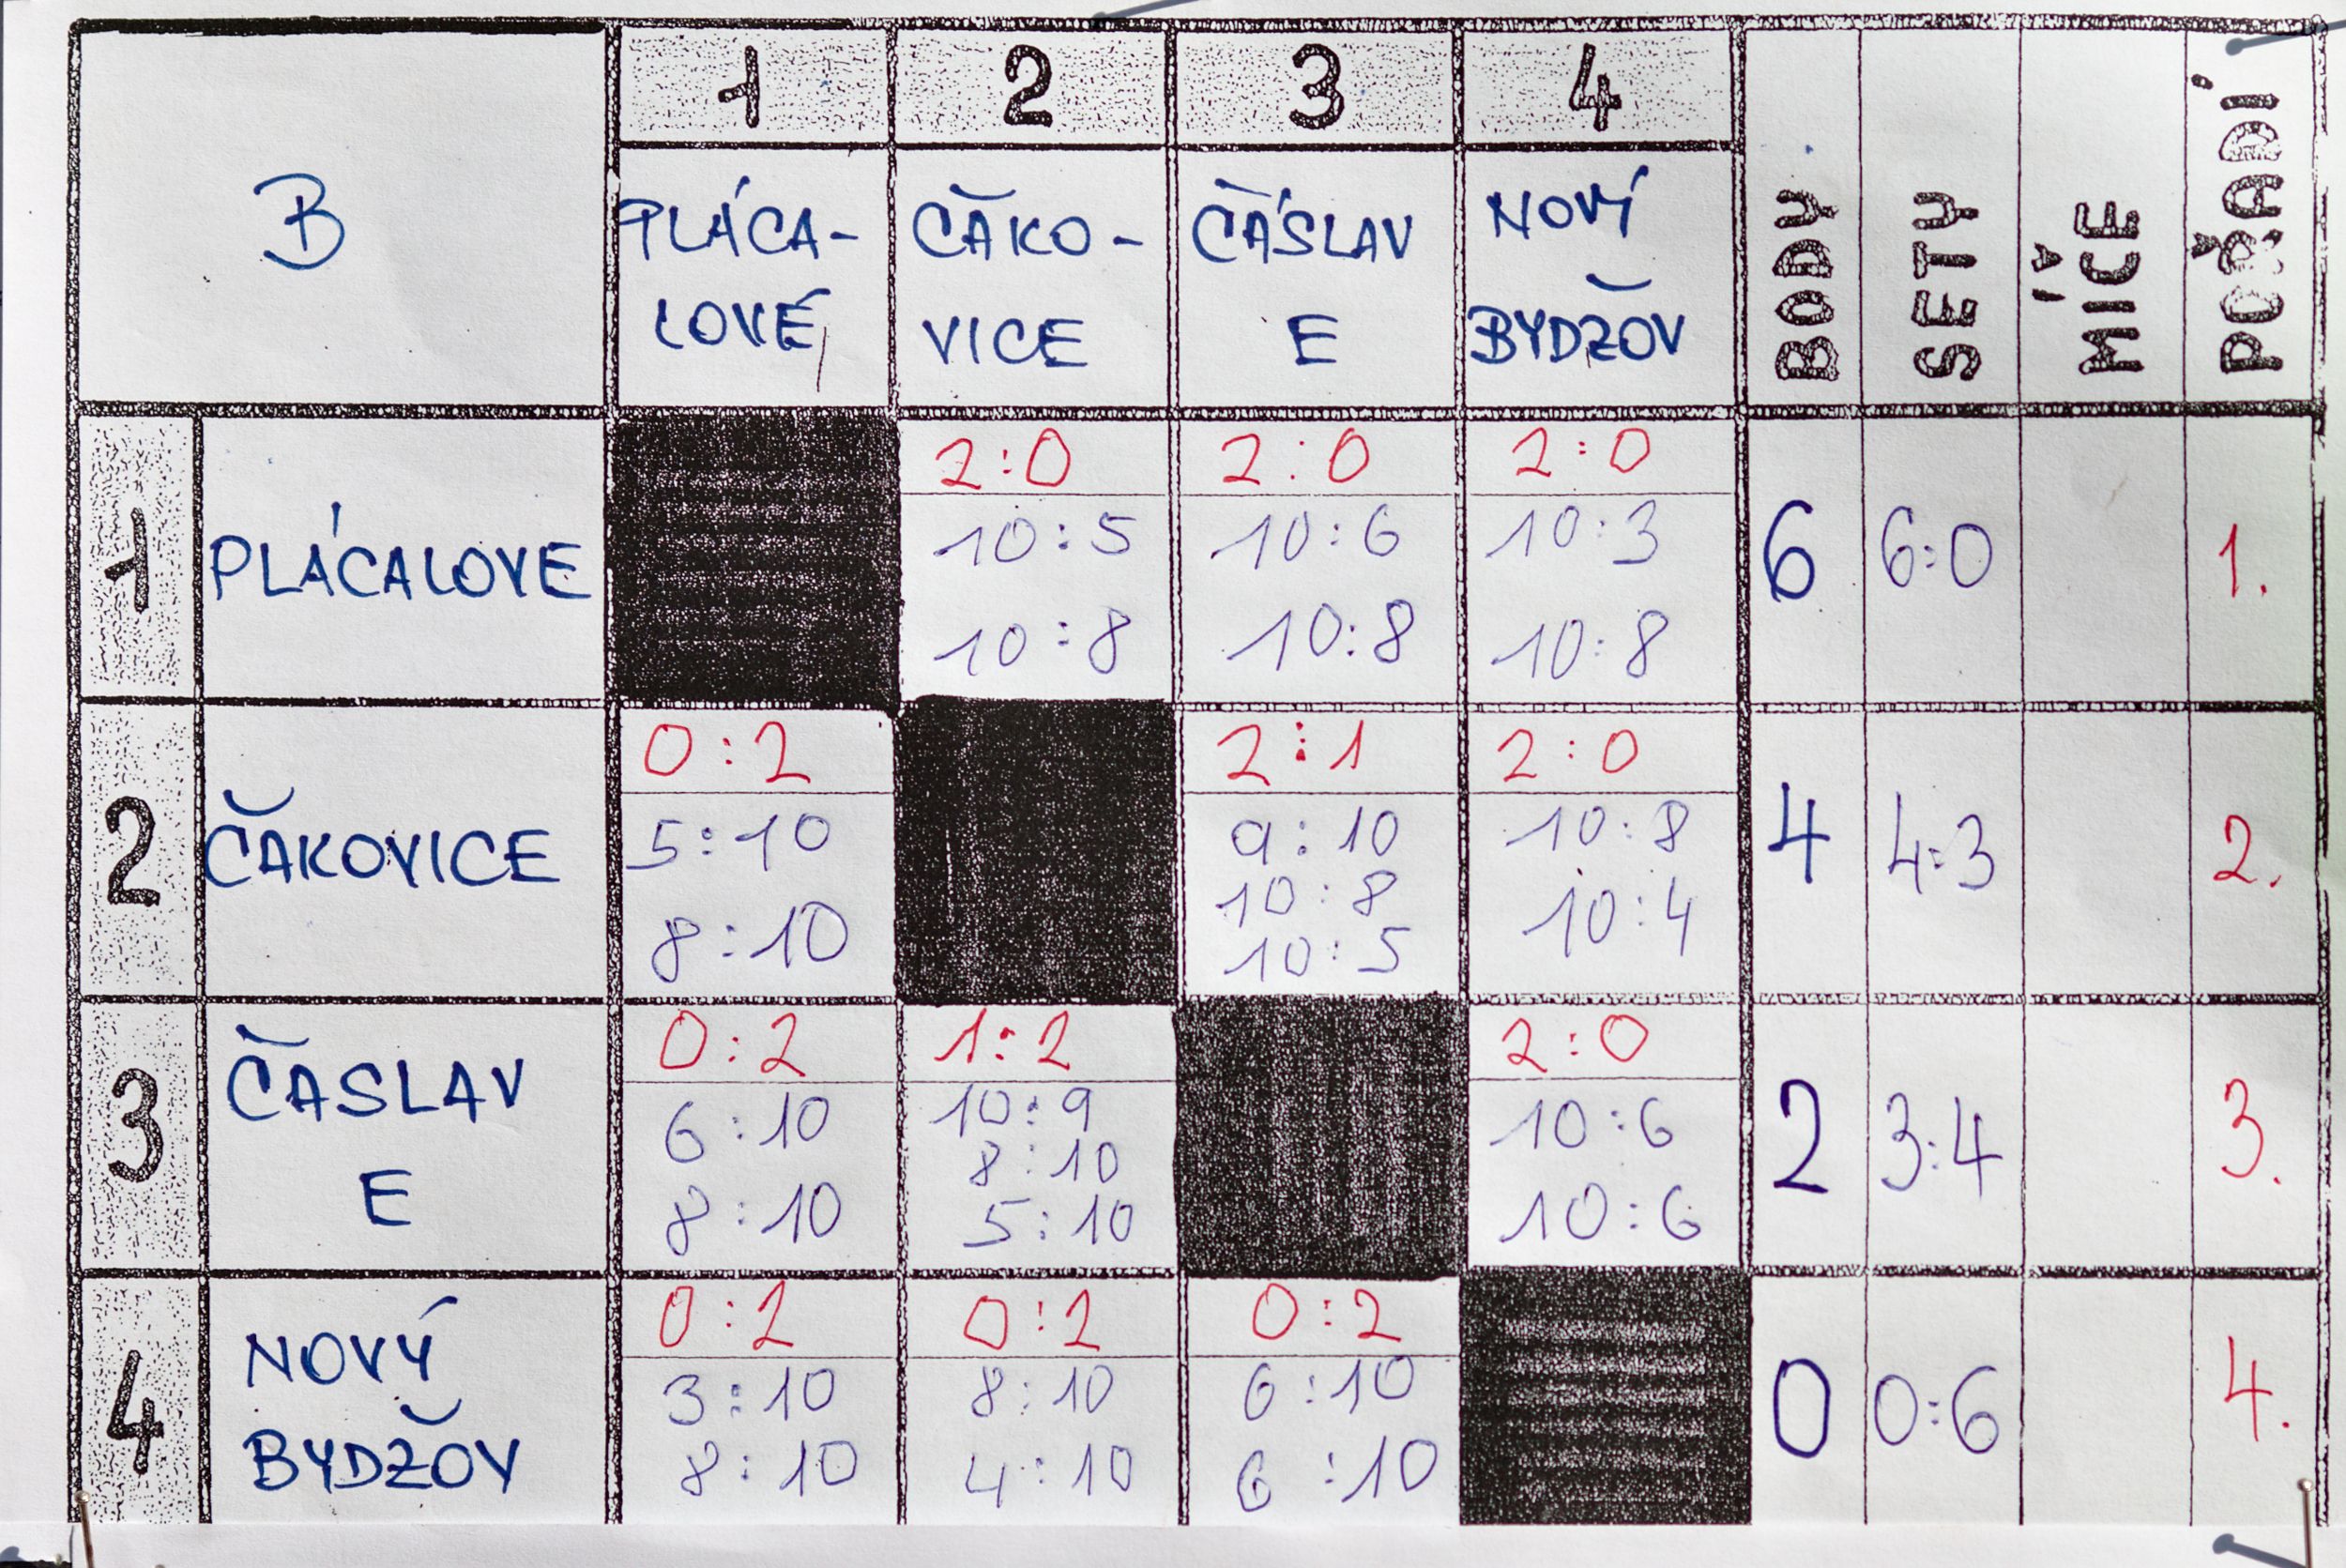 B
1
2
3
4
PLÁCA-
LOVÉ
ČÁKO-
VICE
ČÁSLAV
E
NOVÍ
BYDŽOV
BODY
SETY
MÍČE
POŘADÍ
1
PLÁCALOVE
2:0
10:5
10:8
2:0
10:6
10:8
2:0
10:3
10:8
6
6:0
1.
2
ČAKOVICE
0:2
5:10
8:10
2:1
9:10
10:8
10:5
2:0
10:8
10:4
4
4:3
2.
3
ČASLAV
E
0:2
6:10
8:10
1:2
10:9
8:10
5:10
2:0
10:6
10:6
2
3:4
3.
4
NOVÝ
BYDŽOV
0:2
3:10
8:10
0:2
8:10
4:10
0:2
6:10
6:10
0
0:6
4.